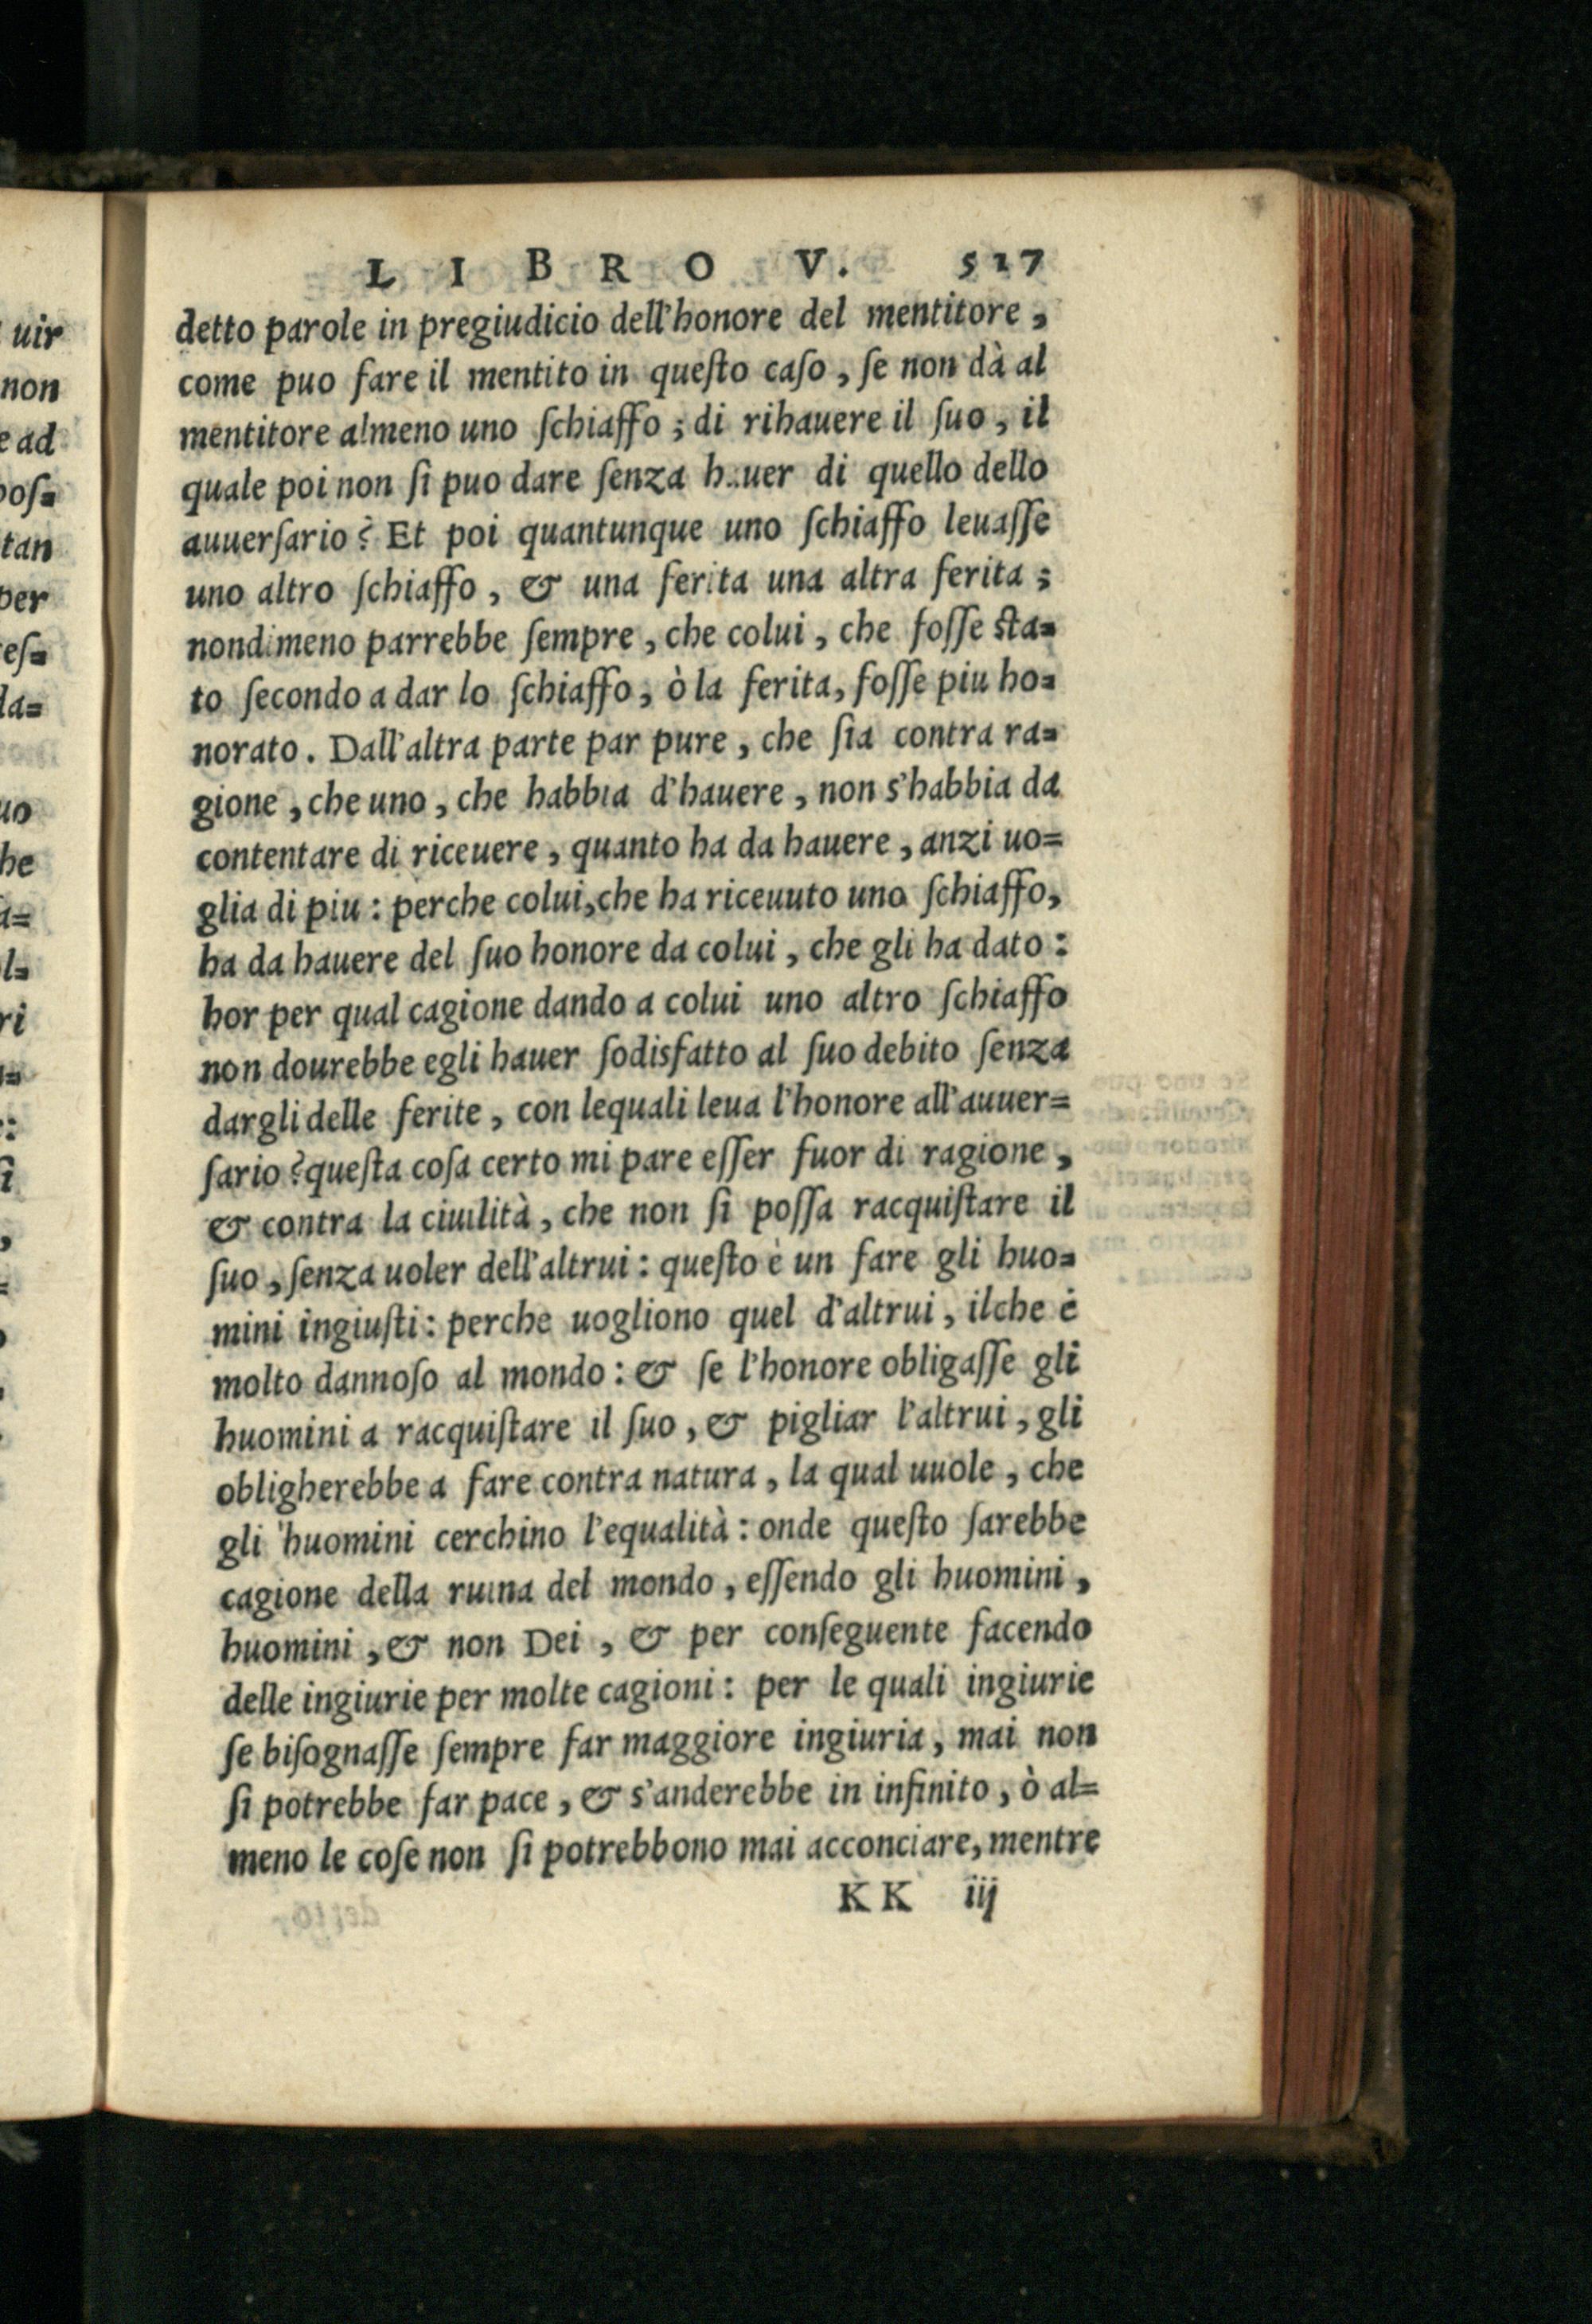 LIBRO V. 527
detto parole in pregiudicio dell'honore del mentitore,
come puo fare il mentito in queſto caſo, ſe non dà al
mentitore almeno uno ſchiaffo; di rihauere il ſuo, il
quale poi non ſi puo dare ſenza h..uer di quello dello
auuerſario? Et poi quantunque uno ſchiaffo leuaſſe
uno altro ſchiaffo, & una ferita una altra ferita;
nondimeno parrebbe ſempre, che colui, che foſſe ſta=
to ſecondo a dar lo ſchiaffo, ò la ferita, foſſe piu ho=
norato. Dall'altra parte par pure, che ſia contra ra=
gione, che uno, che habbia d'hauere, non s'habbia da
contentare di riceuere, quanto ha da hauere, anzi uo=
glia di piu: perche colui, che ha riceuuto uno ſchiaffo,
ha da hauere del ſuo honore da colui, che gli ha dato:
hor per qual cagione dando a colui uno altro ſchiaffo
non dourebbe egli hauer ſodisfatto al ſuo debito ſenza
dargli delle ferite, con lequali leua l'honore all'auuer=
ſario? queſta coſa certo mi pare eſſer fuor di ragione,
& contra la ciuilità, che non ſi poſſa racquiſtare il
ſuo, ſenza uoler dell'altrui: queſto è un fare gli huo=
mini ingiuſti: perche uogliono quel d'altrui, ilche é
molto dannoſo al mondo: & ſe l'honore obligaſſe gli
huomini a racquiſtare il ſuo, & pigliar l'altrui, gli
obligherebbe a fare contra natura, la qual uuole, che
gli huomini cerchino l'equalità: onde queſto ſarebbe
cagione della ruina del mondo, eſſendo gli huomini,
huomini, & non Dei, & per conſeguente facendo
delle ingiurie per molte cagioni: per le quali ingiurie
ſe biſognaſſe ſempre far maggiore ingiuria, mai non
ſi potrebbe far pace, & s'anderebbe in infinito, ò al=
meno le coſe non ſi potrebbono mai acconciare, mentre
KK iij
uir
non
e ad
poſ=
tan
per
eſ=
da=
uo
he
a=
l=
ri